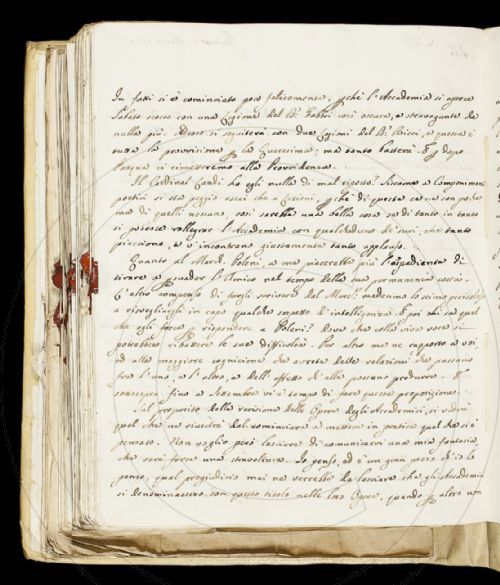 In fatti si è cominciato poco felicemente, pchè l'Accademia si aperse
Sabato scorso con una Lezione del Dr. così oscura, e stravagante che
nulla più. Adesso si seguiterà con due Lezioni del Dr. Ricci, e questa è
tutta la provvisione p la Quaresima; ma tanto basterà. E p dopo
Pasqua ci rimetteremo alla Provvidenza.
Il Cardinal non ha egli nulla di mal riposto? Siccome a Componimenti
poetici si sta peggio assai che a Lezioni, pchè di queste ce ne son poche
ma di quelli nessuno, così sarebbe una bella cosa se di tanto in tanto
si potesse rallegrar l'Accademia con qualcheduno de' suoi, che tanto
piacciono, e v'incontrano giustamente tanto applauso.
Quanto al March. Poleni, a me piacerebbe più l'espediente di
tirare a psuader l'Amico nel tempo della sua permanenza costà.
L'altro compenso di fargli scrivere dal March: medesimo lo stimo pericoloso
a risvegliargli in capo qualche sospetto d'intelligenza. E poi chi sa quel
che egli fosse p rispondere a Poleni? Dove che colla viva voce si
potrebbero ribattere le sue difficoltà. Per altro me ne rapporto a voi,
ed alla maggiore cognizione che avrete delle relazioni che passano
fra l'uno, e l'altro, e dell'effetto ch'elle possano produrre.
sottosopra fino a Settembre vi è tempo di fare questa proposizione.
Sul proposito della revisione delle Opere degli Accademici, si vedrà
quel che ne riuscirà dal cominciare a mettere in pratica quel che si è
pensato. Non voglio però lasciare di comunicarvi una mia fantasia,
che sarà forse una stravoltura. Io penso, ed è un gran pezzo, ch'io lo
penso, qual pregiudizio mai ne verrebbe da lasciare che gli Accademici
si denominassero con questo titolo nelle loro Opere, quando p altro non